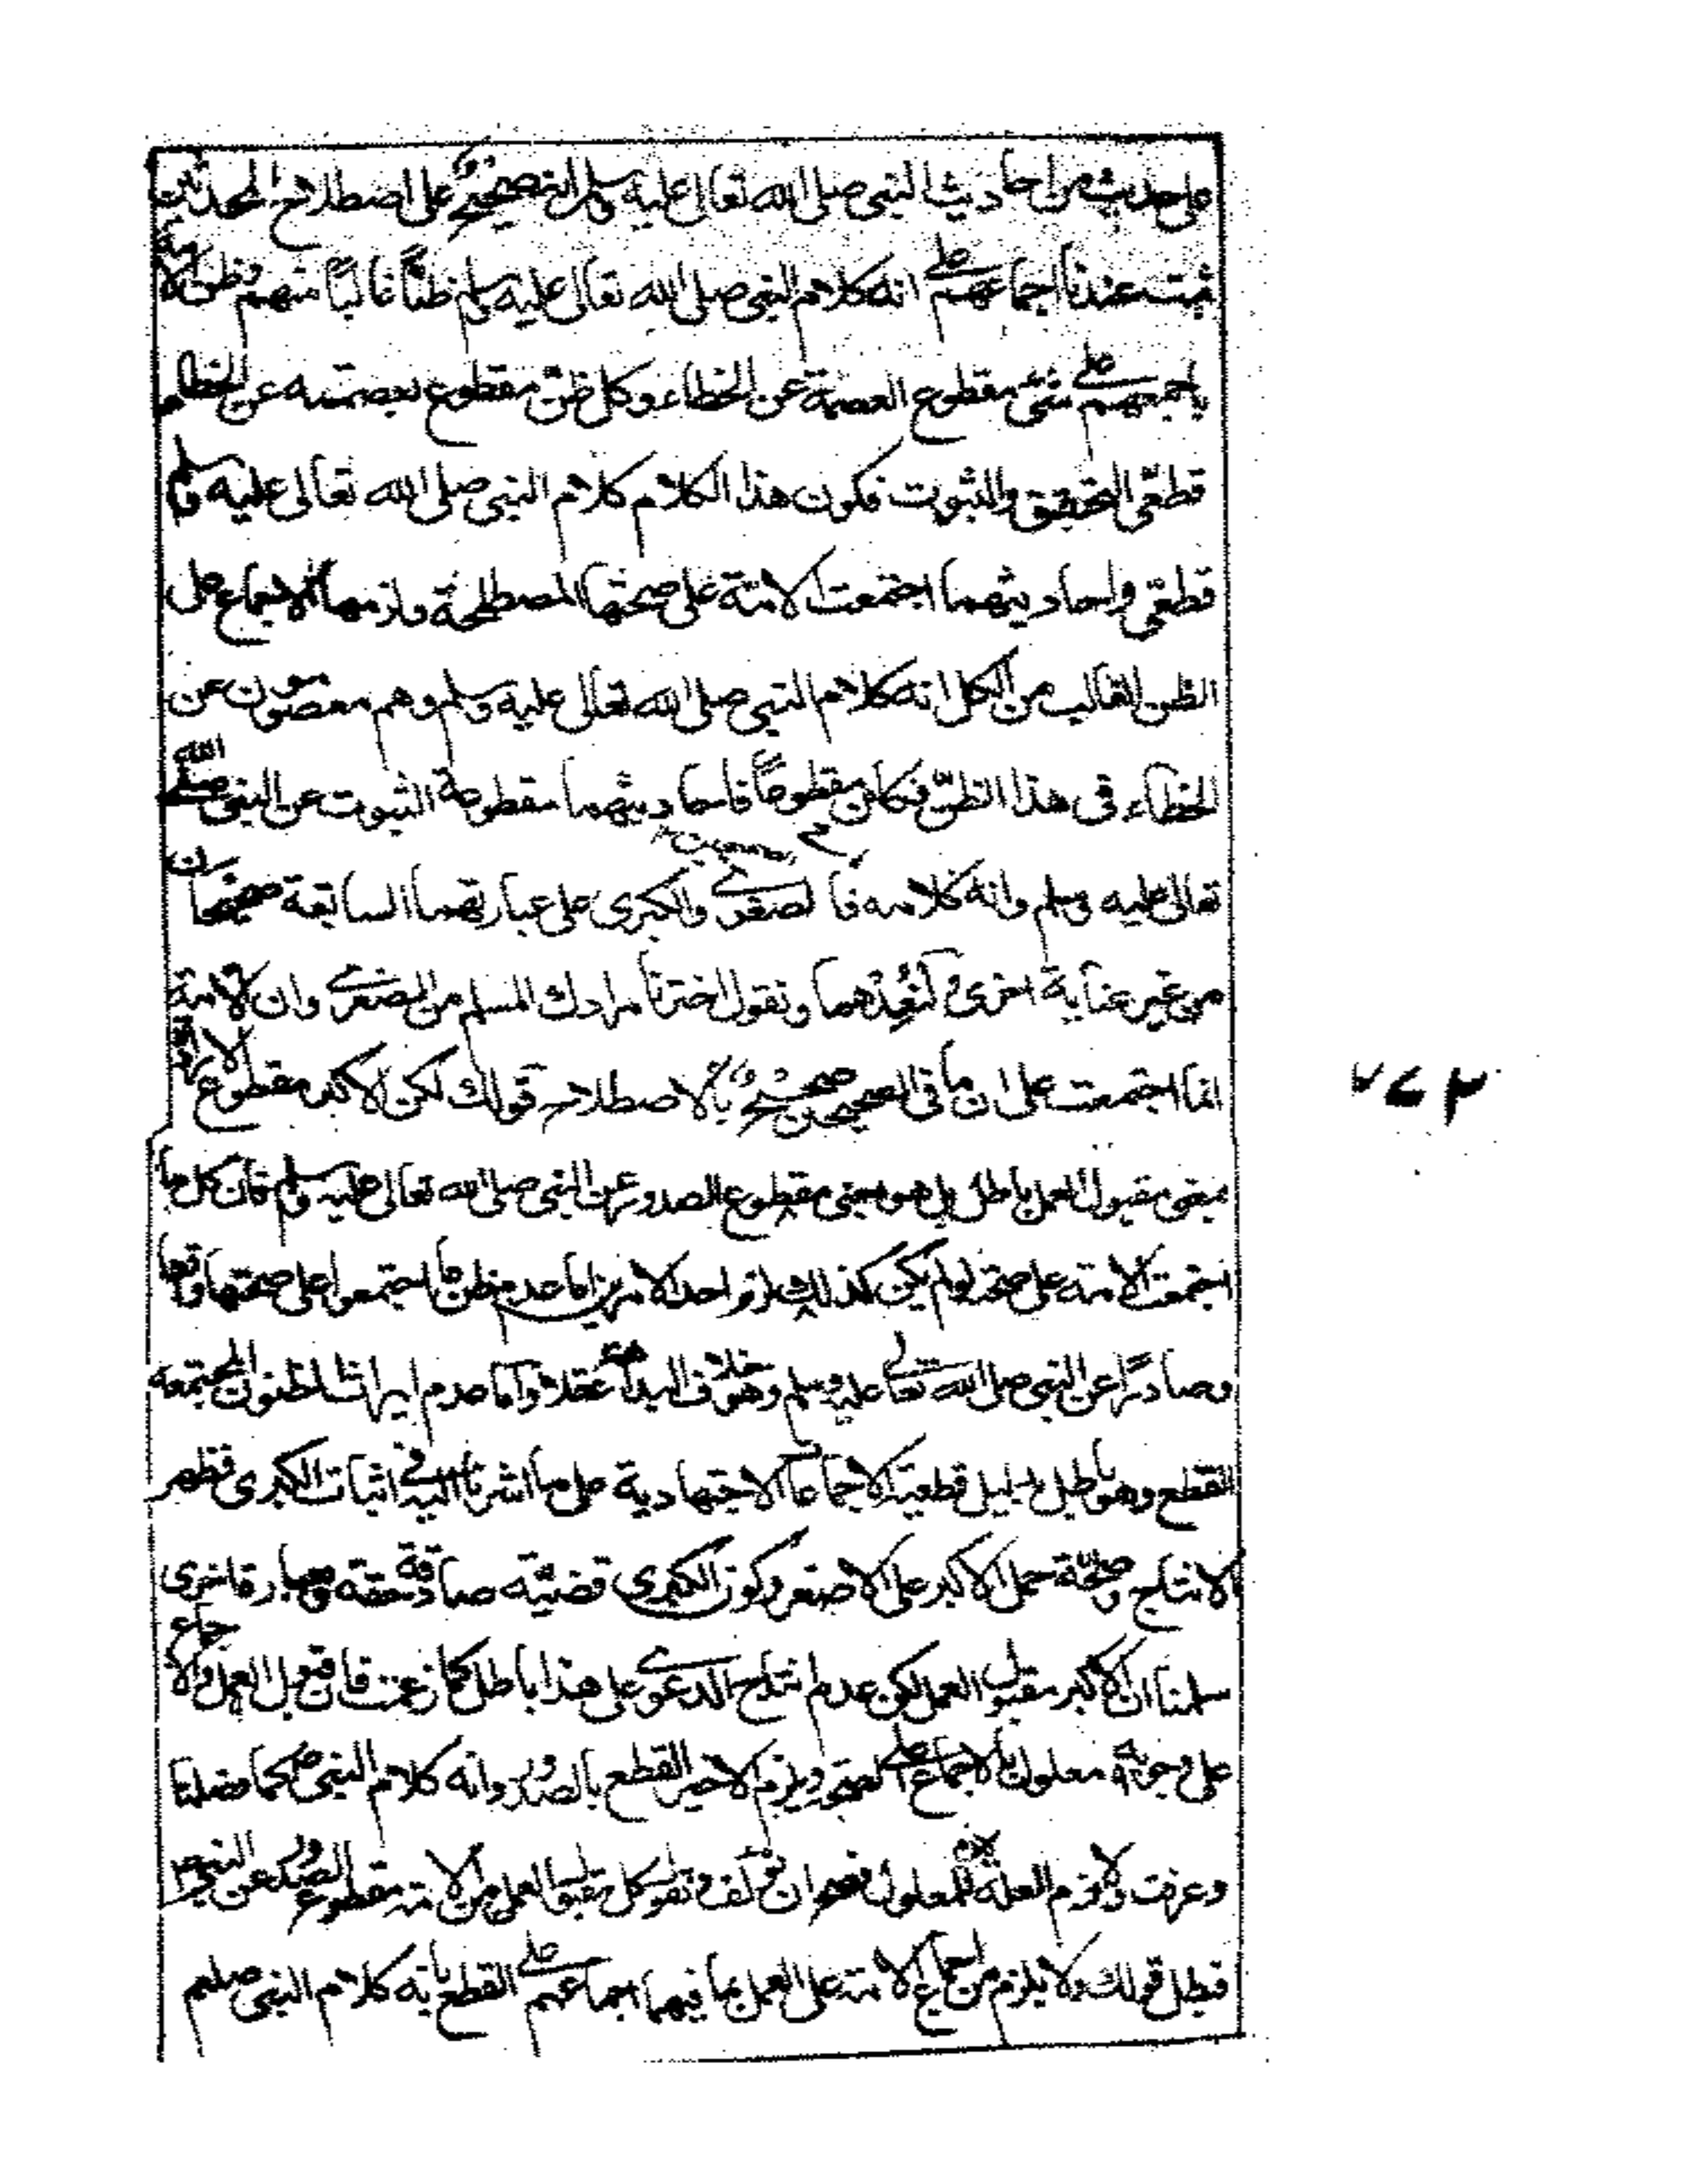 على حديث من احاديث النبي صلى الله تعالى عليه وسلم انه صحيحٌ على اصطلاح المحدثين
ثبت عندنا اجماعهم على انه كلام النبي صلى الله تعالى عليه وسلم ظناً غالباً منهم وظن الامة
باجمعهم على شئ مقطوع العصمة عن الخطاء وكل ظن مقطوع بعصمته عن الخطاء
قطعّي التحقيق والثبوت فكون هذا الكلام كلام النبي صلى الله تعالى عليه وسلم
قطعّي واحاديثهما اجتمعت الامة على صحتها المصطلحة ولازمها الاجماع على
الظن الغالب من الكل انه كلام النبي صلى الله تعالى عليه وسلم وهم معصومون عن
الخطاء في هذا الظن فكان مقطوعاً فاحاديثهما مقطوعة الثبوت عن النبي صلى الله
تعالى عليه وسلم وانه كلامه فالصغرى والكبرى على عبارتهما السابقة صحيحتان
من غير عناية اخرى ونقول اخترنا مرادك المسلم من الصغرى وان الامة
انما اجتمعت على ان ما في الصحيحين صحيحٌ بالاصطلاح قولك لكن الاكبر مقطوع
بمعنى مقبول العمل باطل بل هو بمعنى مقطوع الصدور عن النبي صلى الله تعالى عليه وسلم فان كل ما
اجتمعت الامة على صحته لو لم يكن كذلك لزم احد الامرين اما عدم ظن ما اجتمعوا على صحتها
وصادرًا عن النبي صلى الله تعالى عليه وسلم وهو خلاف عقلا واما عدم ايراث الظنون المجتمعة
القطع وهو باطل بدليل قطعية الاجماعات الاجتهادية على ما اشرنا اليه في اثبات الكبرى فظهر
الانتاج وصحّة حمل الاكبر على الاصغر وكون الكبرى قضيّة صادقة حقة وبعبارة اخرى
سلمنا ان الاكبر مقبول العمل لكن عدم انتاج الدعوى على هذا باطل كما زعمت فان قبول العمل والاجماع
على وجوبه معلول بالاجماع على الصحة ويلزم الاخير القطع بالصدور وانه كلام النبي صلعم كما فصلنا
وعرفت ولازم العلة لازم للمعلول ونقول كل مقبول العمل من الامة مقطوع الصدور عن النبي صلعم
فبطل قولك ولا يلزم من اجماع الامة على العمل بما فيهما اجماعهم على القطع بانه كلام النبي صلعم